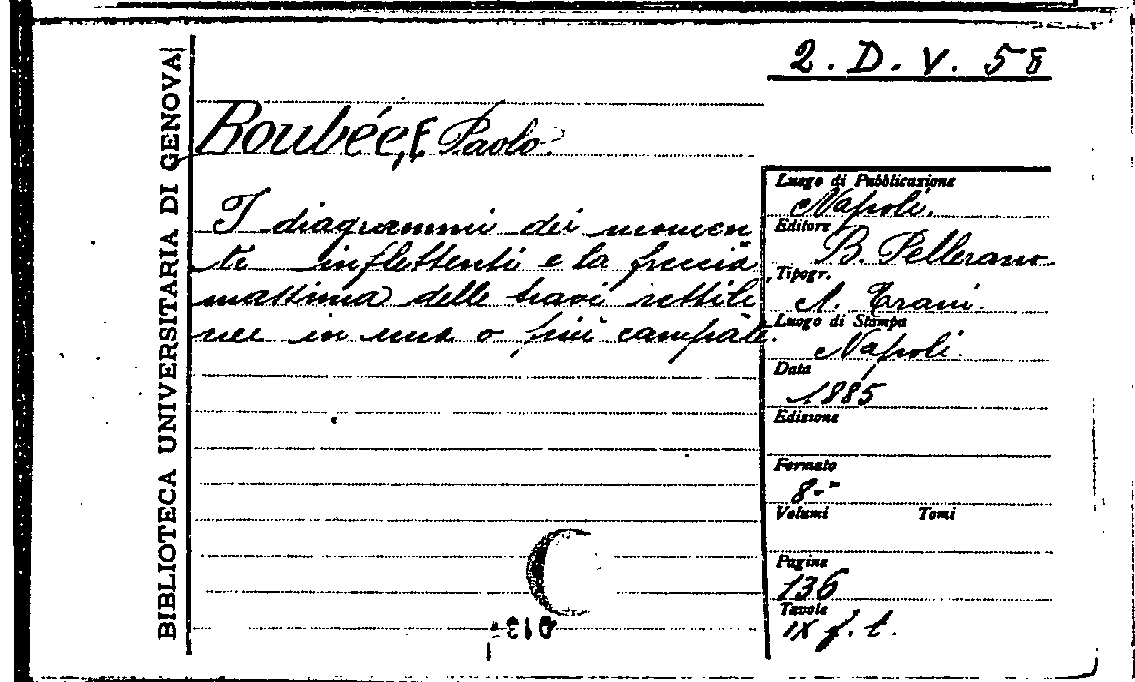 2. D. V. 58
BIBLIOTECA UNIVERSITARIA DI GENOVA
Roubée, E Paolo.
I diagrammi dei momen
ti inflettenti e la freccia
massima delle travi rettili
nee in una o più campate.
Luogo di Pubblicazione
Napoli.
Editore
B. Pellerano
Tipogr.
A. Trani.
Luogo di Stampa
Napoli.
Data
1885
Edizione
Formato
8.-
Volumi Tomi
Pagine
136
Tavole
IX f. t.